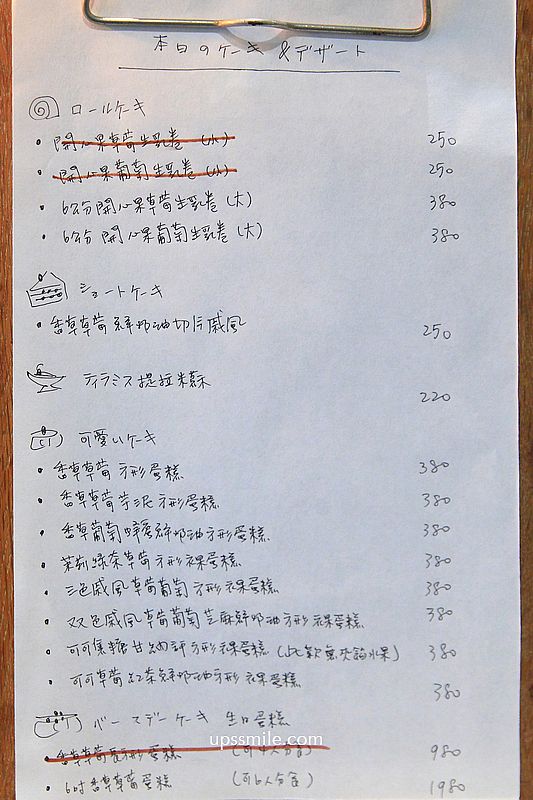 本日のケーキ &デザート
ロールケーキ
• 開心果草莓生乳卷 (小) 250
• 開心果葡萄生乳卷 (小) 250
• 6公分開心果草莓生乳卷 (大) 380
• 6公分 開心果葡萄生乳卷 (大) 380
ショートケーキ
• 香草草莓鮮奶油切片戚風 250
ティラミス 提拉米蘇 220
可愛いケーキ
• 香草草莓方形蛋糕 380
• 香草草莓芋泥方形蛋糕 380
• 香草葡萄蜂蜜鮮奶油方形蛋糕 380
• 茉莉綠茶草莓方形裸蛋糕 380
• 三色戚風草莓葡萄方形裸蛋糕 380
• 双色戚風草莓葡萄芝麻鮮奶油方形裸蛋糕 380
• 可可焦糖甘納許方形裸蛋糕 (此款無夾餡水果) 380
• 可可草莓紅茶鮮奶油方形裸蛋糕 380
バースデーケーキ 生日蛋糕
upssmile.com
• 香草草莓長方形蛋糕 (可4人分食) 980
• 6吋香草草莓蛋糕 (可6人分食) 1980